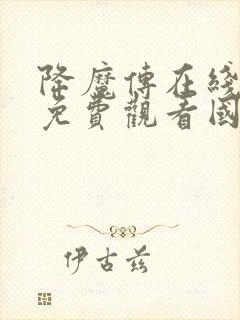 降魔傳在綫
免費觀看國
伊古茲